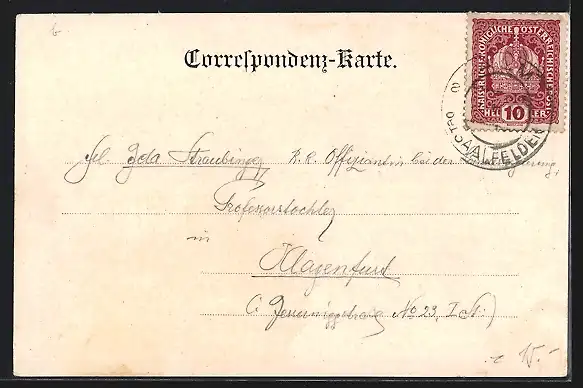 6
Correspondenz-Karte.
KAISERLICHE KÖNIGLICHE ÖSTERREICHISCHE POST
10
HELLER
SAALFELDEN
Frl. Ida Straubinger K. K. Offiziantin bei der
Professorstochter
in
Klagenfurt
No 23, I. St.)
15.-